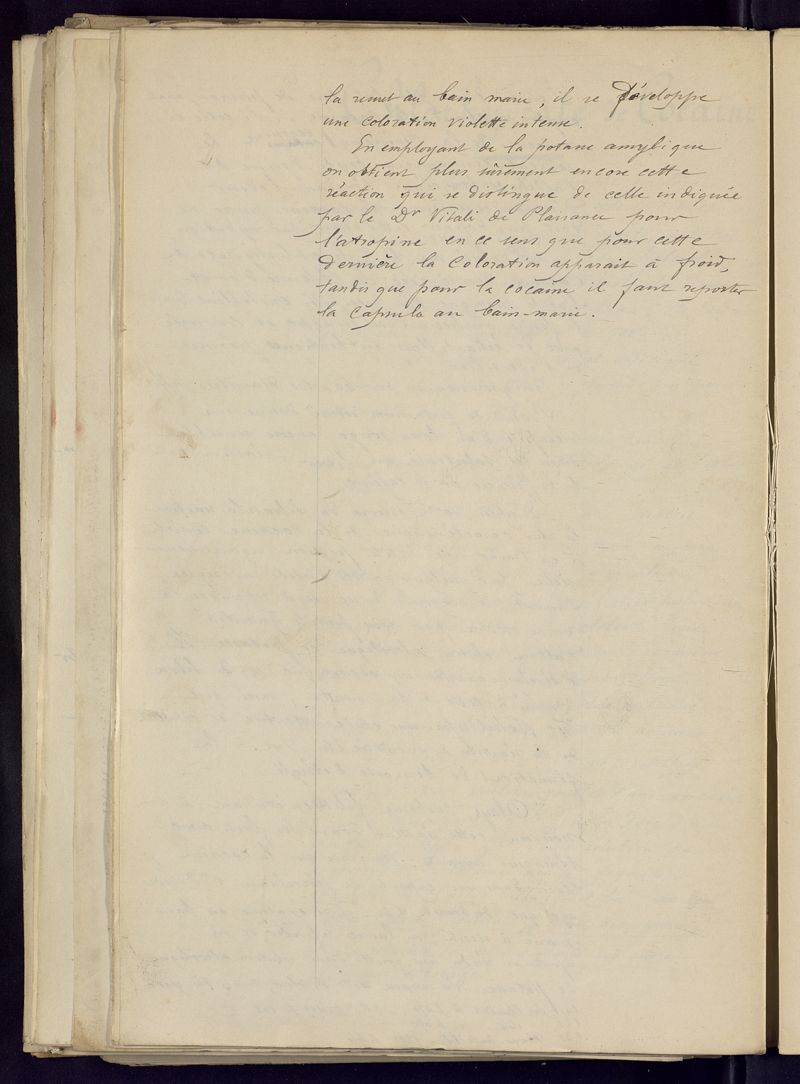 la remet au bain marie, il se développe
une coloration violette intense.
En employant de la potasse amylique
on obtient plus sûrement encore cette
réaction qui se distingue de celle indiquée
par le Dr Vitali de Plaisance pour
l'atropine en ce sens que pour cette
dernière la coloration apparait à froid,
tandis que pour la cocaïne il faut reporter
la capsule au bain-marie.